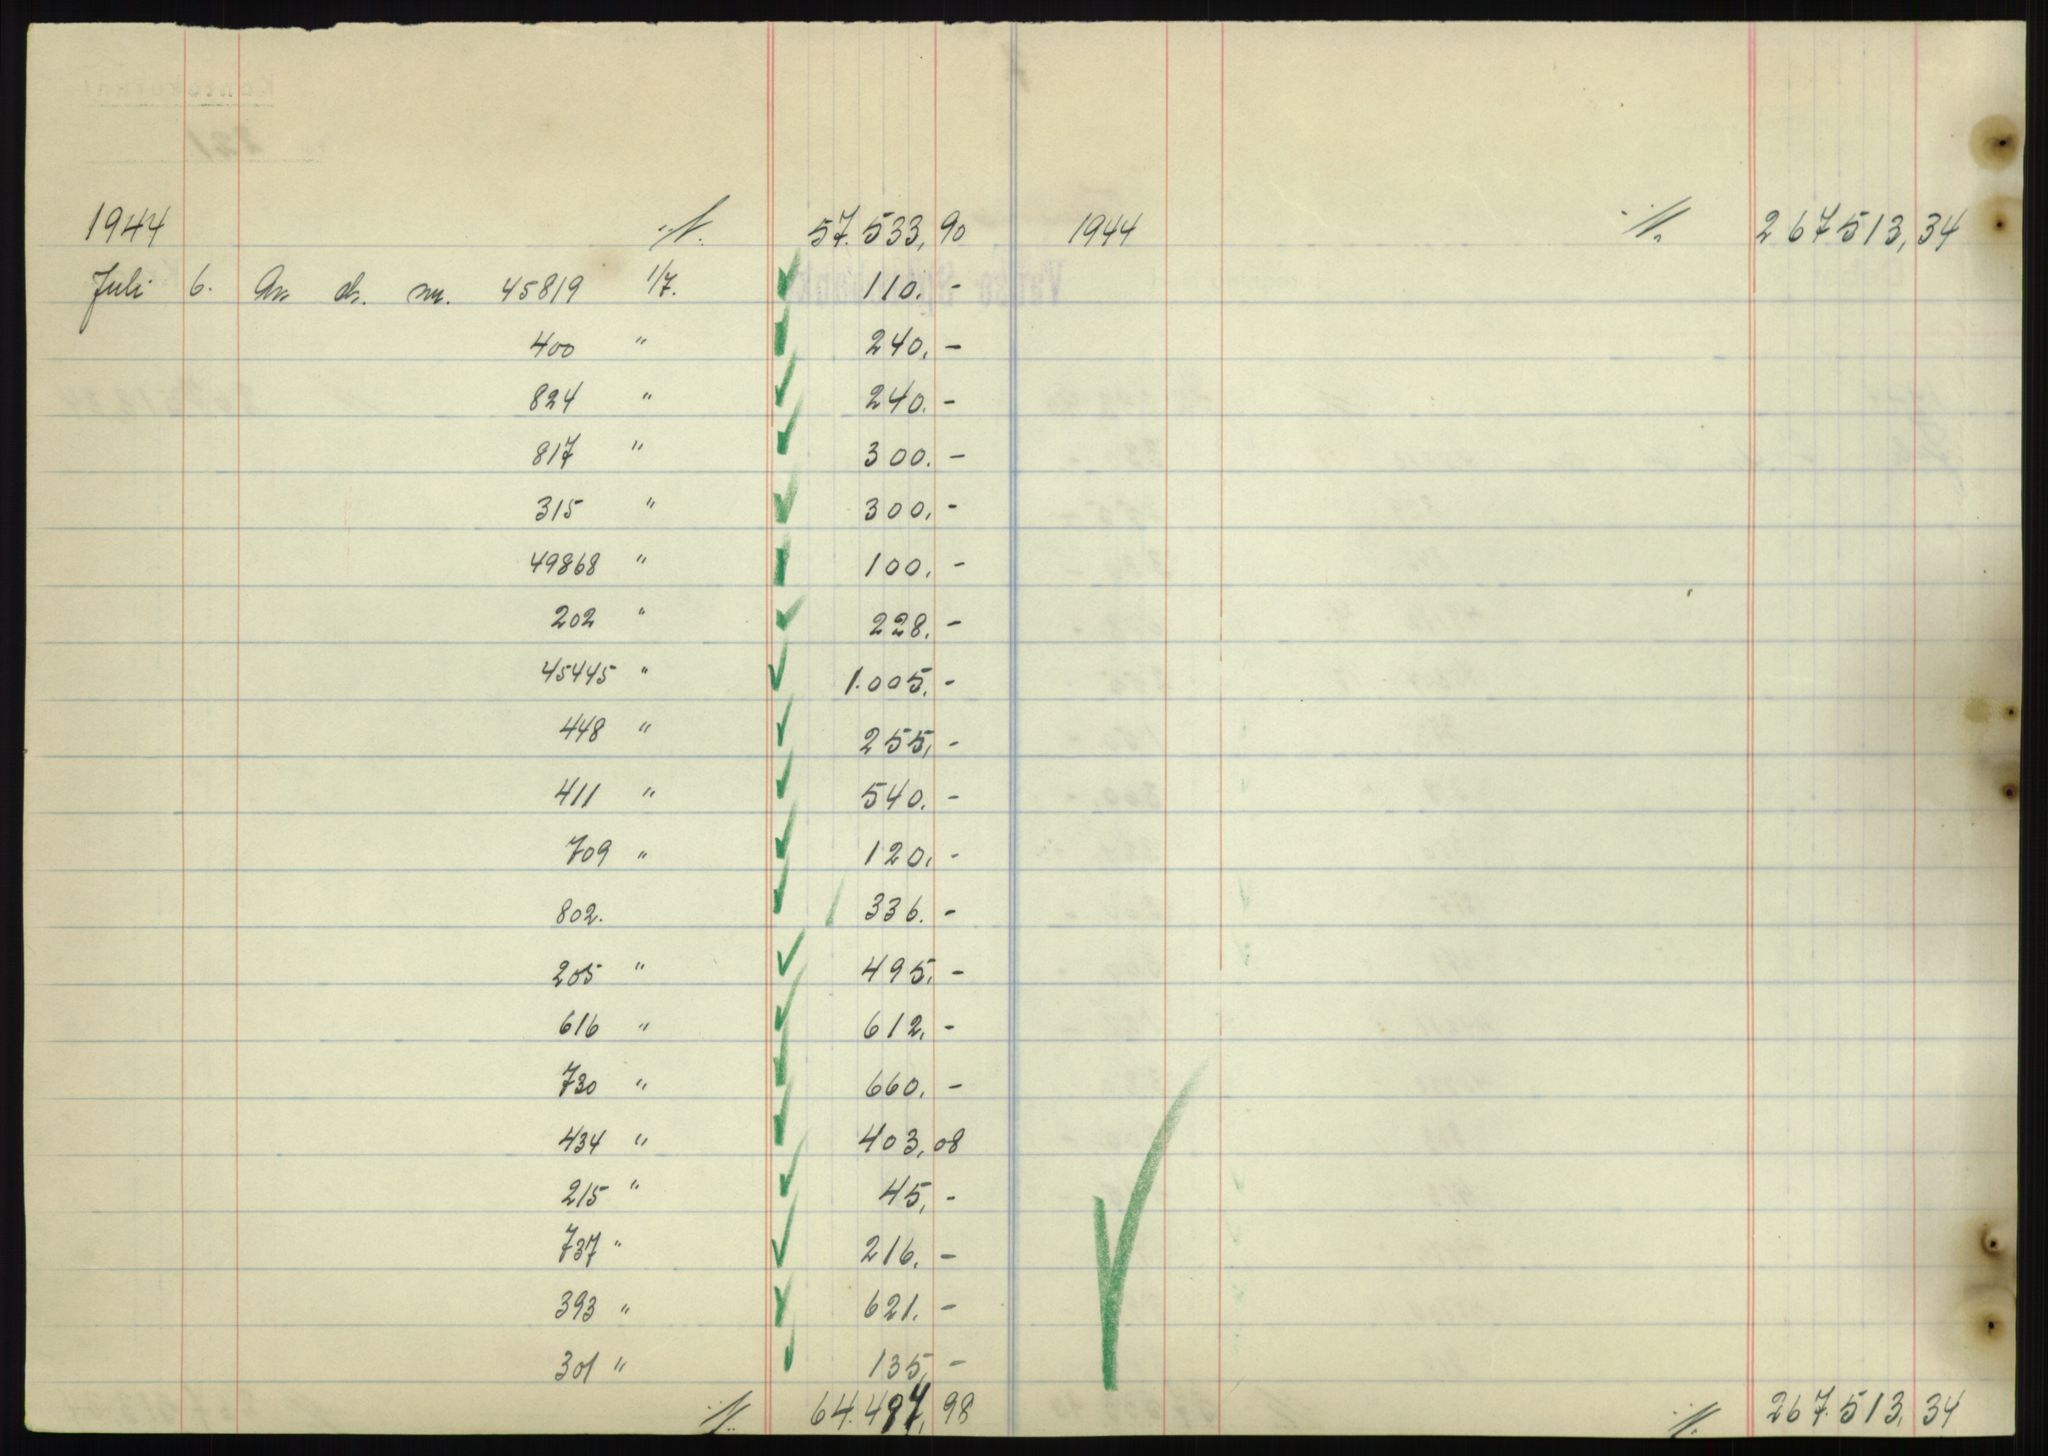 1944 ·/. 57.533,90 1944 ·/. 267513,34
Juli 6. An ch. nr. 45819 1/7. 110.-
400 " 240.-
824 " 240.-
817 " 300.-
315 " 300.-
49868 " 100.-
202 " 228.-
45445 " 1.005.-
448 " 255,-
411 " 540.-
709 " 120.-
802. 336.-
205 " 495.-
616 " 612.-
730 " 660.-
434 " 403,08
215 " 45,-
737 " 216.-
393 " 621.-
301 " 135,-
·/. 64.494,98 ·/. 267.513,34